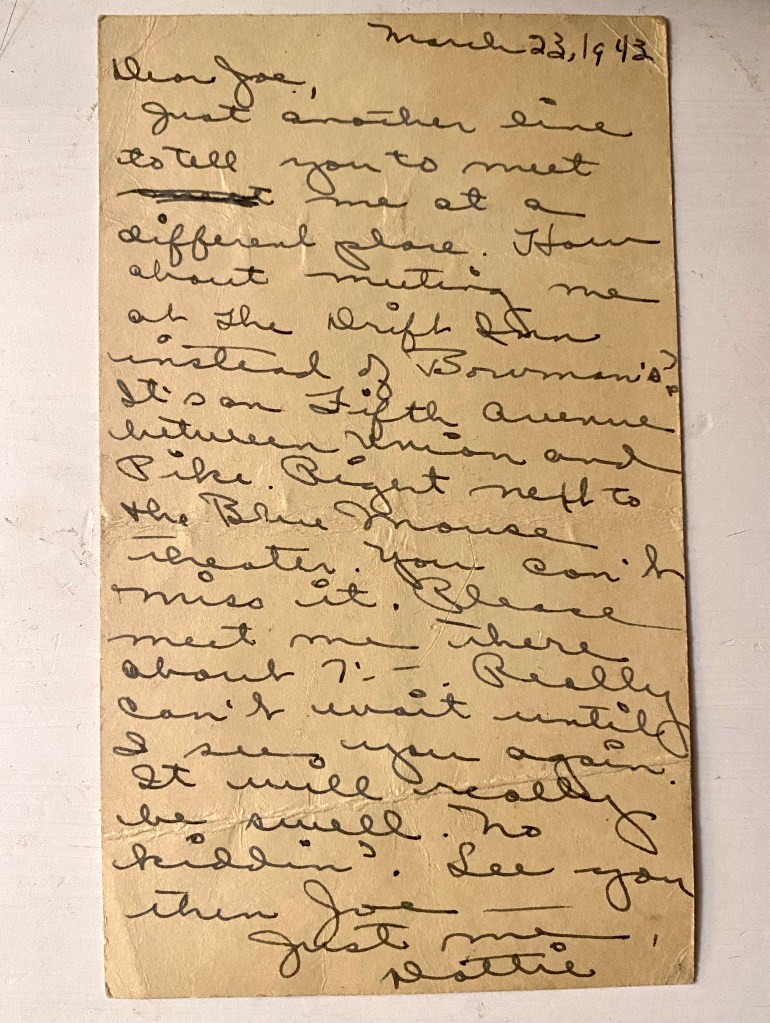 March 23, 1943
Dear Joe,
Just another line
to tell you to meet
me at a
different place. How
about meeting me
at the Drift Inn
instead of Bowman's?
It's on Fifth Avenue
between Union and
Pike. Right next to
the Blue Mouse
theater. You can't
miss it. Please
meet me there
about 7:–. Really
can't wait until
I see you again.
It will really
be swell. No
kiddin'. See you
then Joe —
Just me,
Dottie